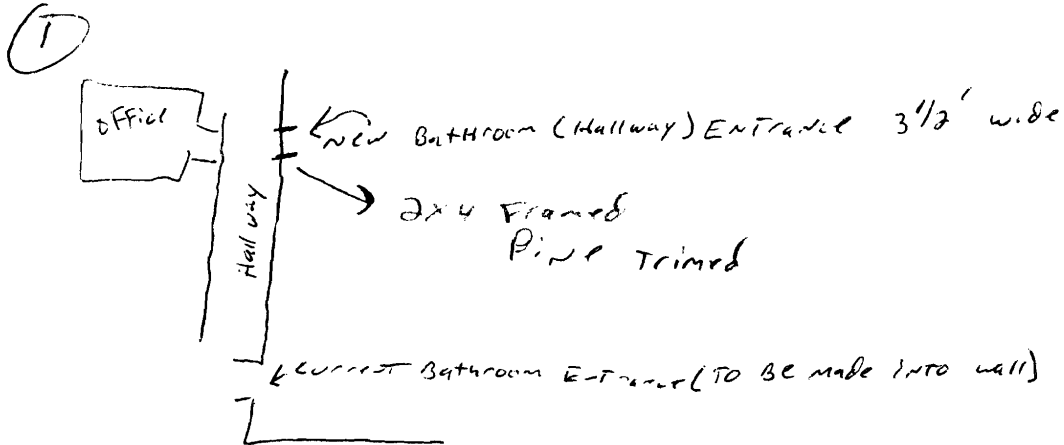 1
office
New Bathroom (Hallway) Entrance 3 1/2' wide
2x4 Framed
Pine Trimed
Hallway
Current Bathroom Entrance (To Be made into wall)